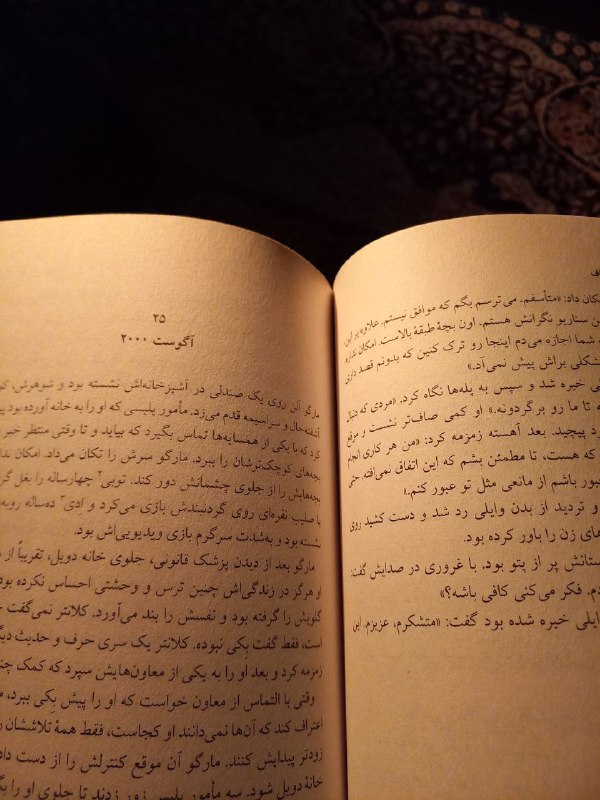 کان داد: «متأسفم. می‌ترسم بگم که موافق نیستم. علاوه بر این،
ستاریو نگرانش هستم. اون بچهٔ طبقهٔ بالاست. امکان نداره
شما اجازه می‌دم اینجا رو ترک کنین که بدونم قصد داری
مشکلی براش پیش نمی‌آد.»
خیره شد و سپس به پله‌ها نگاه کرد. «مردی که دنبال
تا ما رو برگردونه.» او کمی صاف‌تر نشست و موقع
پیچید. بعد آهسته زمزمه کرد: «من هر کاری انجام
که هست، تا مطمئن بشم که این اتفاق نمی‌افته. حتی
باشم از مانعی مثل تو عبور کنم.»
و تردید از بدن وایلی رد شد و دست کشید روی
های زن را باور کرده بود.
ستانش پر از پتو بود. با غروری در صدایش گفت:
دم. فکر می‌کنی کافی باشه؟»
ایلی خیره شده بود گفت: «متشکرم، عزیزم. این
۲۵
آگوست ۲۰۰۰
مارگو آلن روی یک صندلی در آشپزخانه‌اش نشسته بود و شوهرش،
آشفته‌حال و سراسیمه قدم می‌زد. مأمور پلیسی که او را به خانه آورده بود
کرد که با یکی از همسایه‌ها تماس بگیرد که بیاید و تا وقتی منتظر خبر
بچه‌های کوچک‌ترشان را ببرد. مارگو سرش را تکان می‌داد. امکان
بچه‌هایش را از جلوی چشمانش دور کند. نوپی۲ چهارساله را بغل
با صلیب نقره‌ای روی گردنبندش بازی می‌کرد و ادی۳ ده‌ساله
نشسته بود و به‌شدت سرگرم بازی ویدیویی‌اش بود.
مارگو بعد از دیدن پزشک قانونی، جلوی خانه دویل، تقریباً از
او هرگز در زندگی‌اش چنین ترس و وحشتی احساس نکرده بود
گلویش را گرفته بود و نفسش را بند می‌آورد. کلانتر نمی‌گفت
است، فقط گفت بِکی نبوده. کلانتر یک سری حرف و حدیث
زمزمه کرد و بعد او را به یکی از معاون‌هایش سپرد که کمک
وقتی با التماس از معاون خواست که او را پیش بِکی ببرد،
اعتراف کند که آن‌ها نمی‌دانند او کجاست، فقط همهٔ تلاششان
زودتر پیدایش کنند. مارگو آن موقع کنترلش را از دست
خانهٔ دویل شود. سه مأمور پلیس زور زدند تا جلوی او را